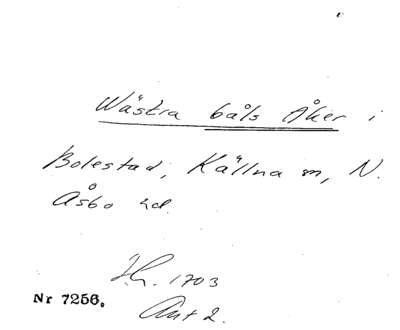 Wästra båls Åker i
Bolestad, Källna sn, N.
Åsbo hd.
J.h. 1703
Akt 2.
Nr 7256.